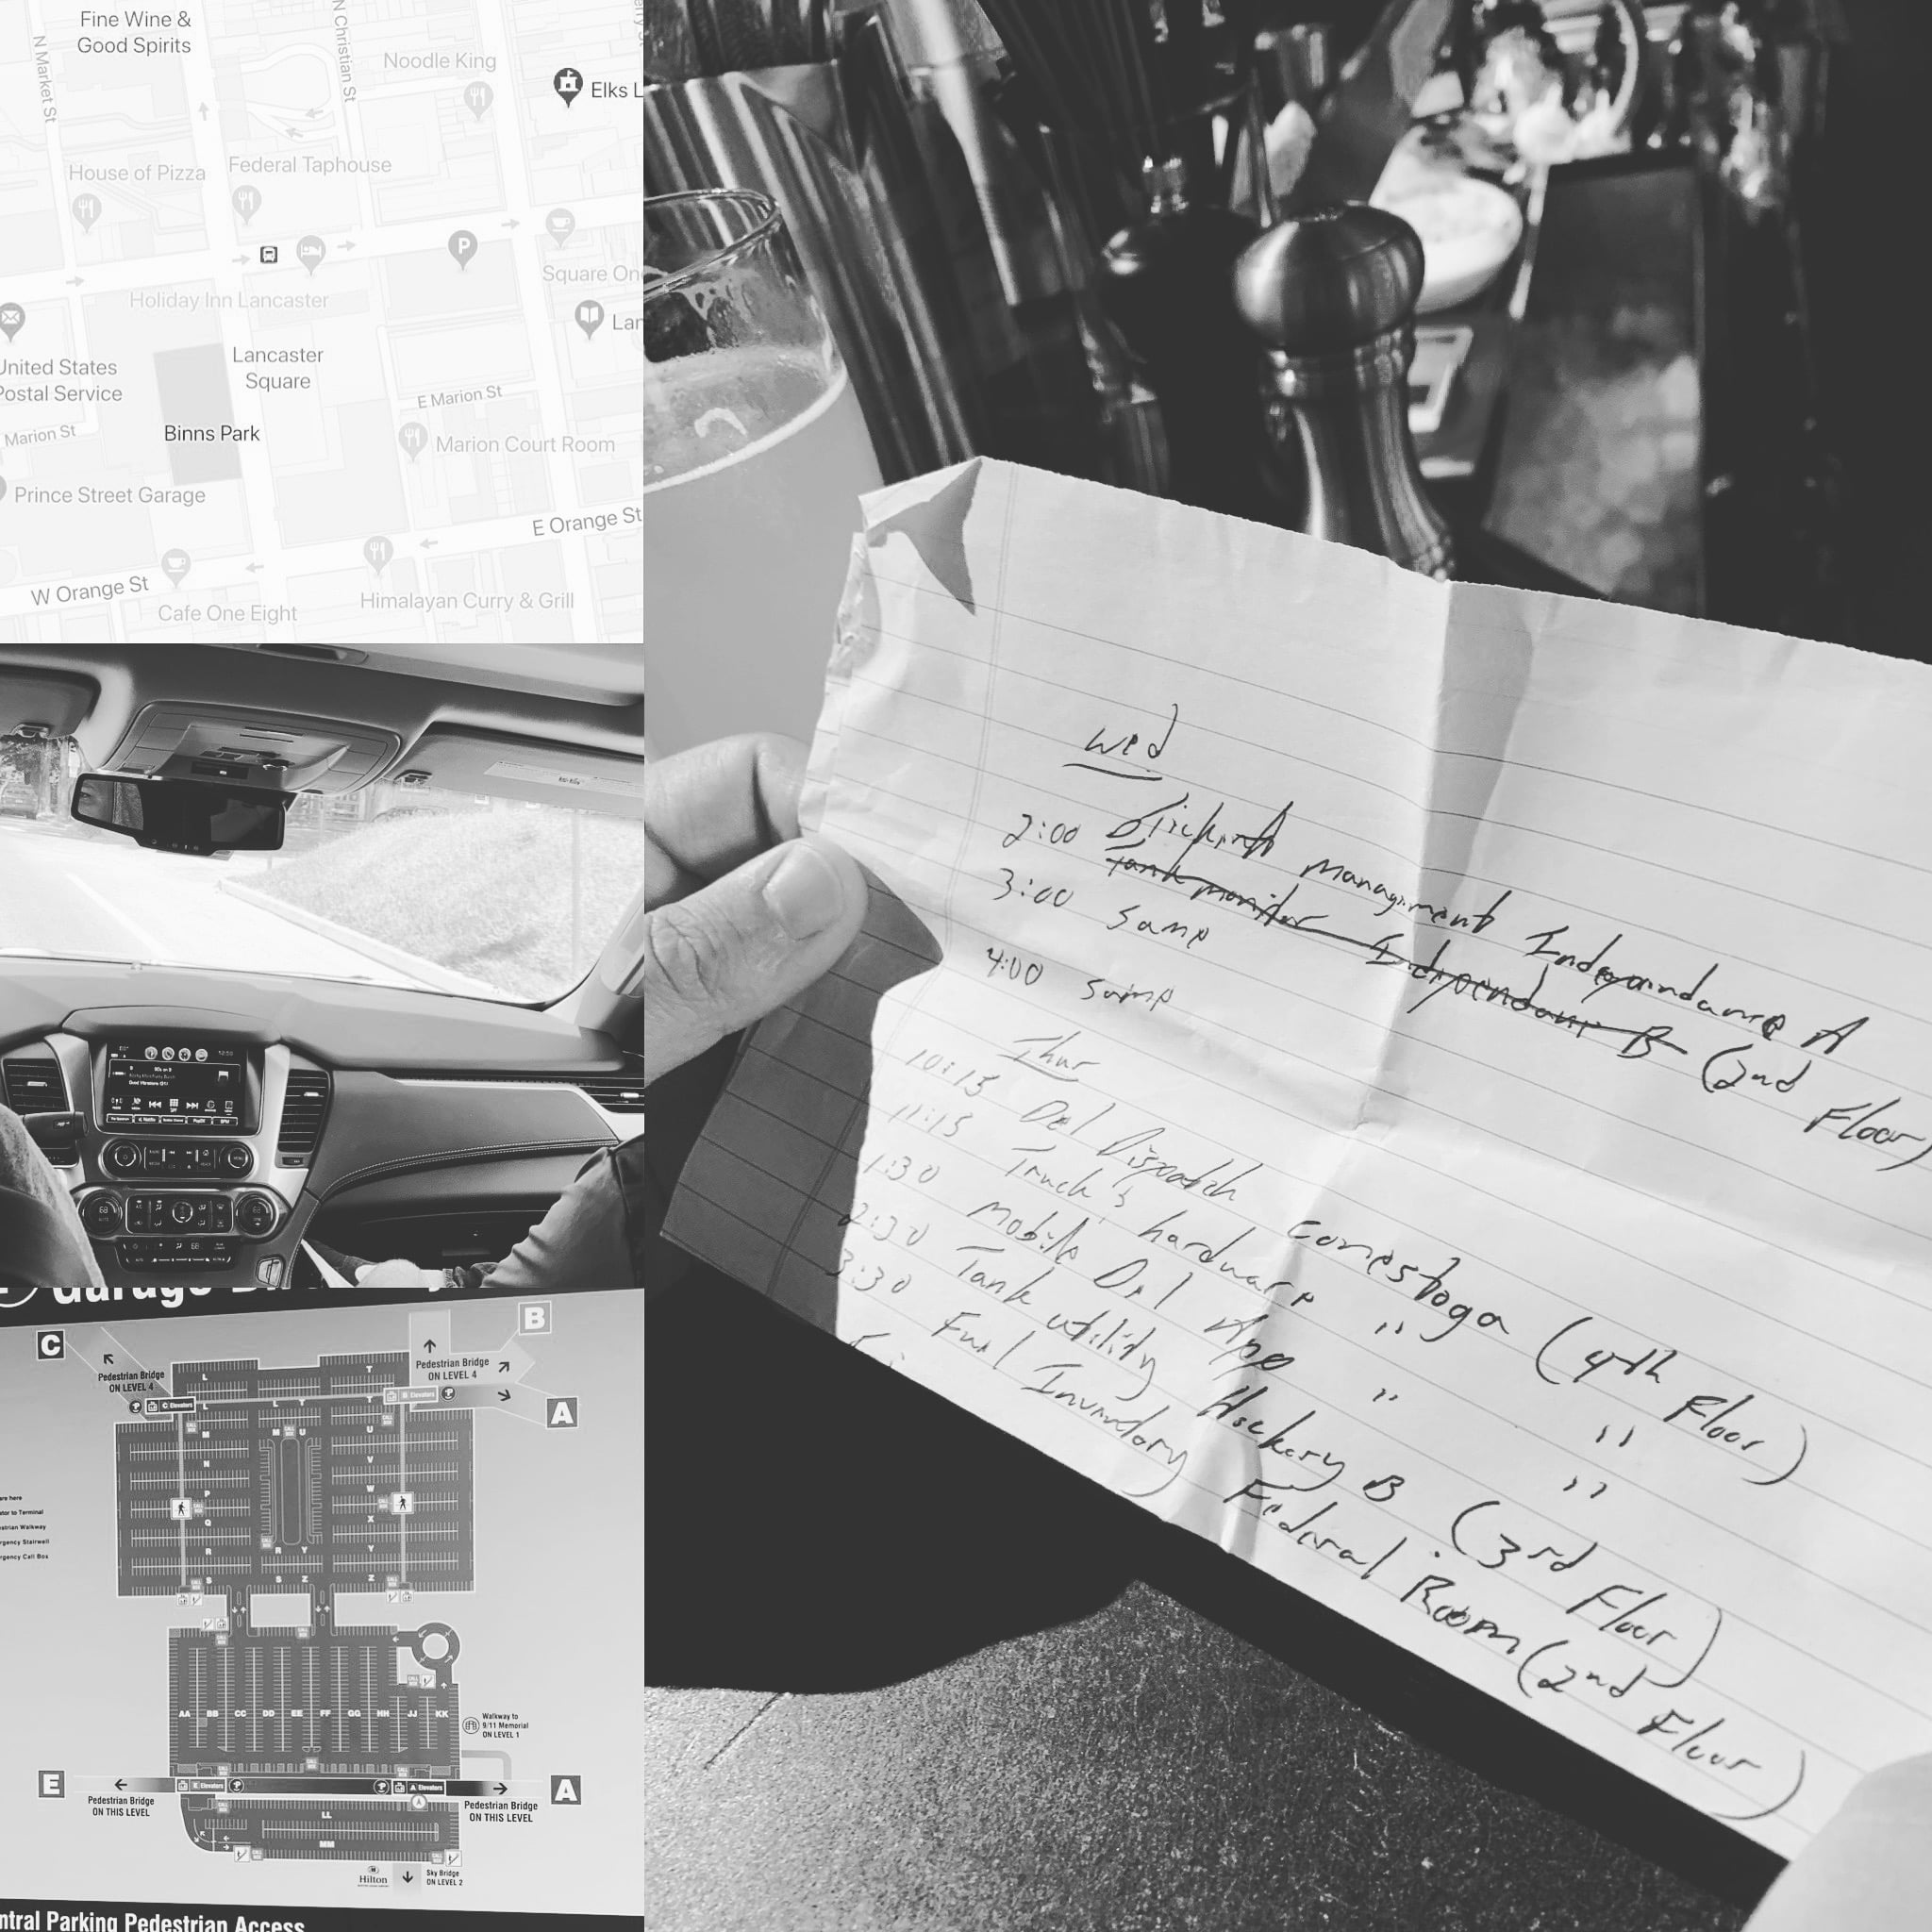 Fine Wine &
Good Spirits
N Market St
N Christian St
Noodle King
Elks L
House of Pizza
Federal Taphouse
P
Square On
Holiday Inn Lancaster
Lan
United States
Postal Service
Lancaster
Square
E Marion St
Marion St
Binns Park
Marion Court Room
Prince Street Garage
E Orange St
W Orange St
Cafe One Eight
Himalayan Curry & Grill
C
B
Pedestrian Bridge
ON LEVEL 4
Pedestrian Bridge
ON LEVEL 4
A
L
T
L
L T
T
M
M U
U
N
V
P
W
Q
X
R
R Y
Y
S
S Z
Z
are here
ator to Terminal
estrian Walkway
rgency Stairwell
rgency Call Box
AA BB CC DD EE FF GG HH JJ KK
Walkway to
9/11 Memorial
ON LEVEL 1
E
E Elevators
A Elevators
A
Pedestrian Bridge
ON THIS LEVEL
Pedestrian Bridge
ON THIS LEVEL
LL
MM
Hilton
Sky Bridge
ON LEVEL 2
ntral Parking Pedestrian Access
Wed
2:00 managment Independance A
Tank monitor Independant B (2nd Floor)
3:00 Same
4:00 Same
Thur
10:15 Del Dispatch Conestoga (4th Floor)
11:15 Truck's hardware " "
1:30 Mobile Del App " "
2:30 Tank utility Hickory B (3rd Floor)
3:30 Fuel Inventory Federal Room (2nd Floor)